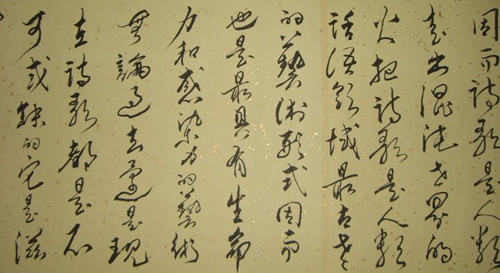 因而诗歌是人类
走出混沌世界的
火把诗歌是人类
话语领域最古老
的艺术形式因而
也是最具有生命
力和感染力的艺术
无論过去还是現
在詩歌都是不
可或缺的它是滋